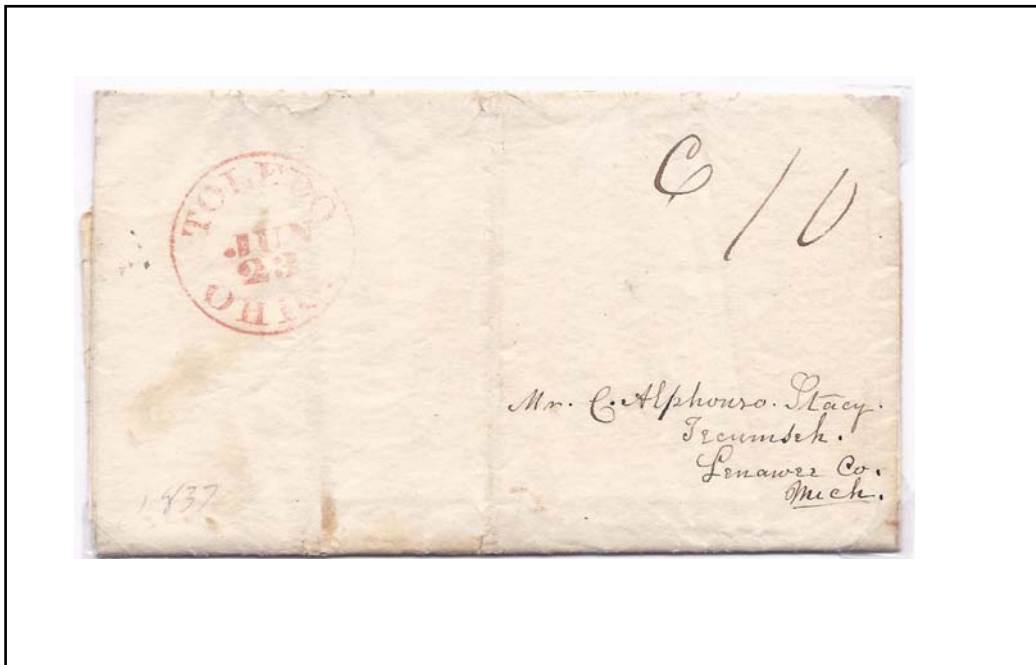 TOLEDO
JUN
23
OHIO
C 10
Mr. C. Alphonso. Stacy.
Tecumseh.
Lenawee Co.
Mich.
1837